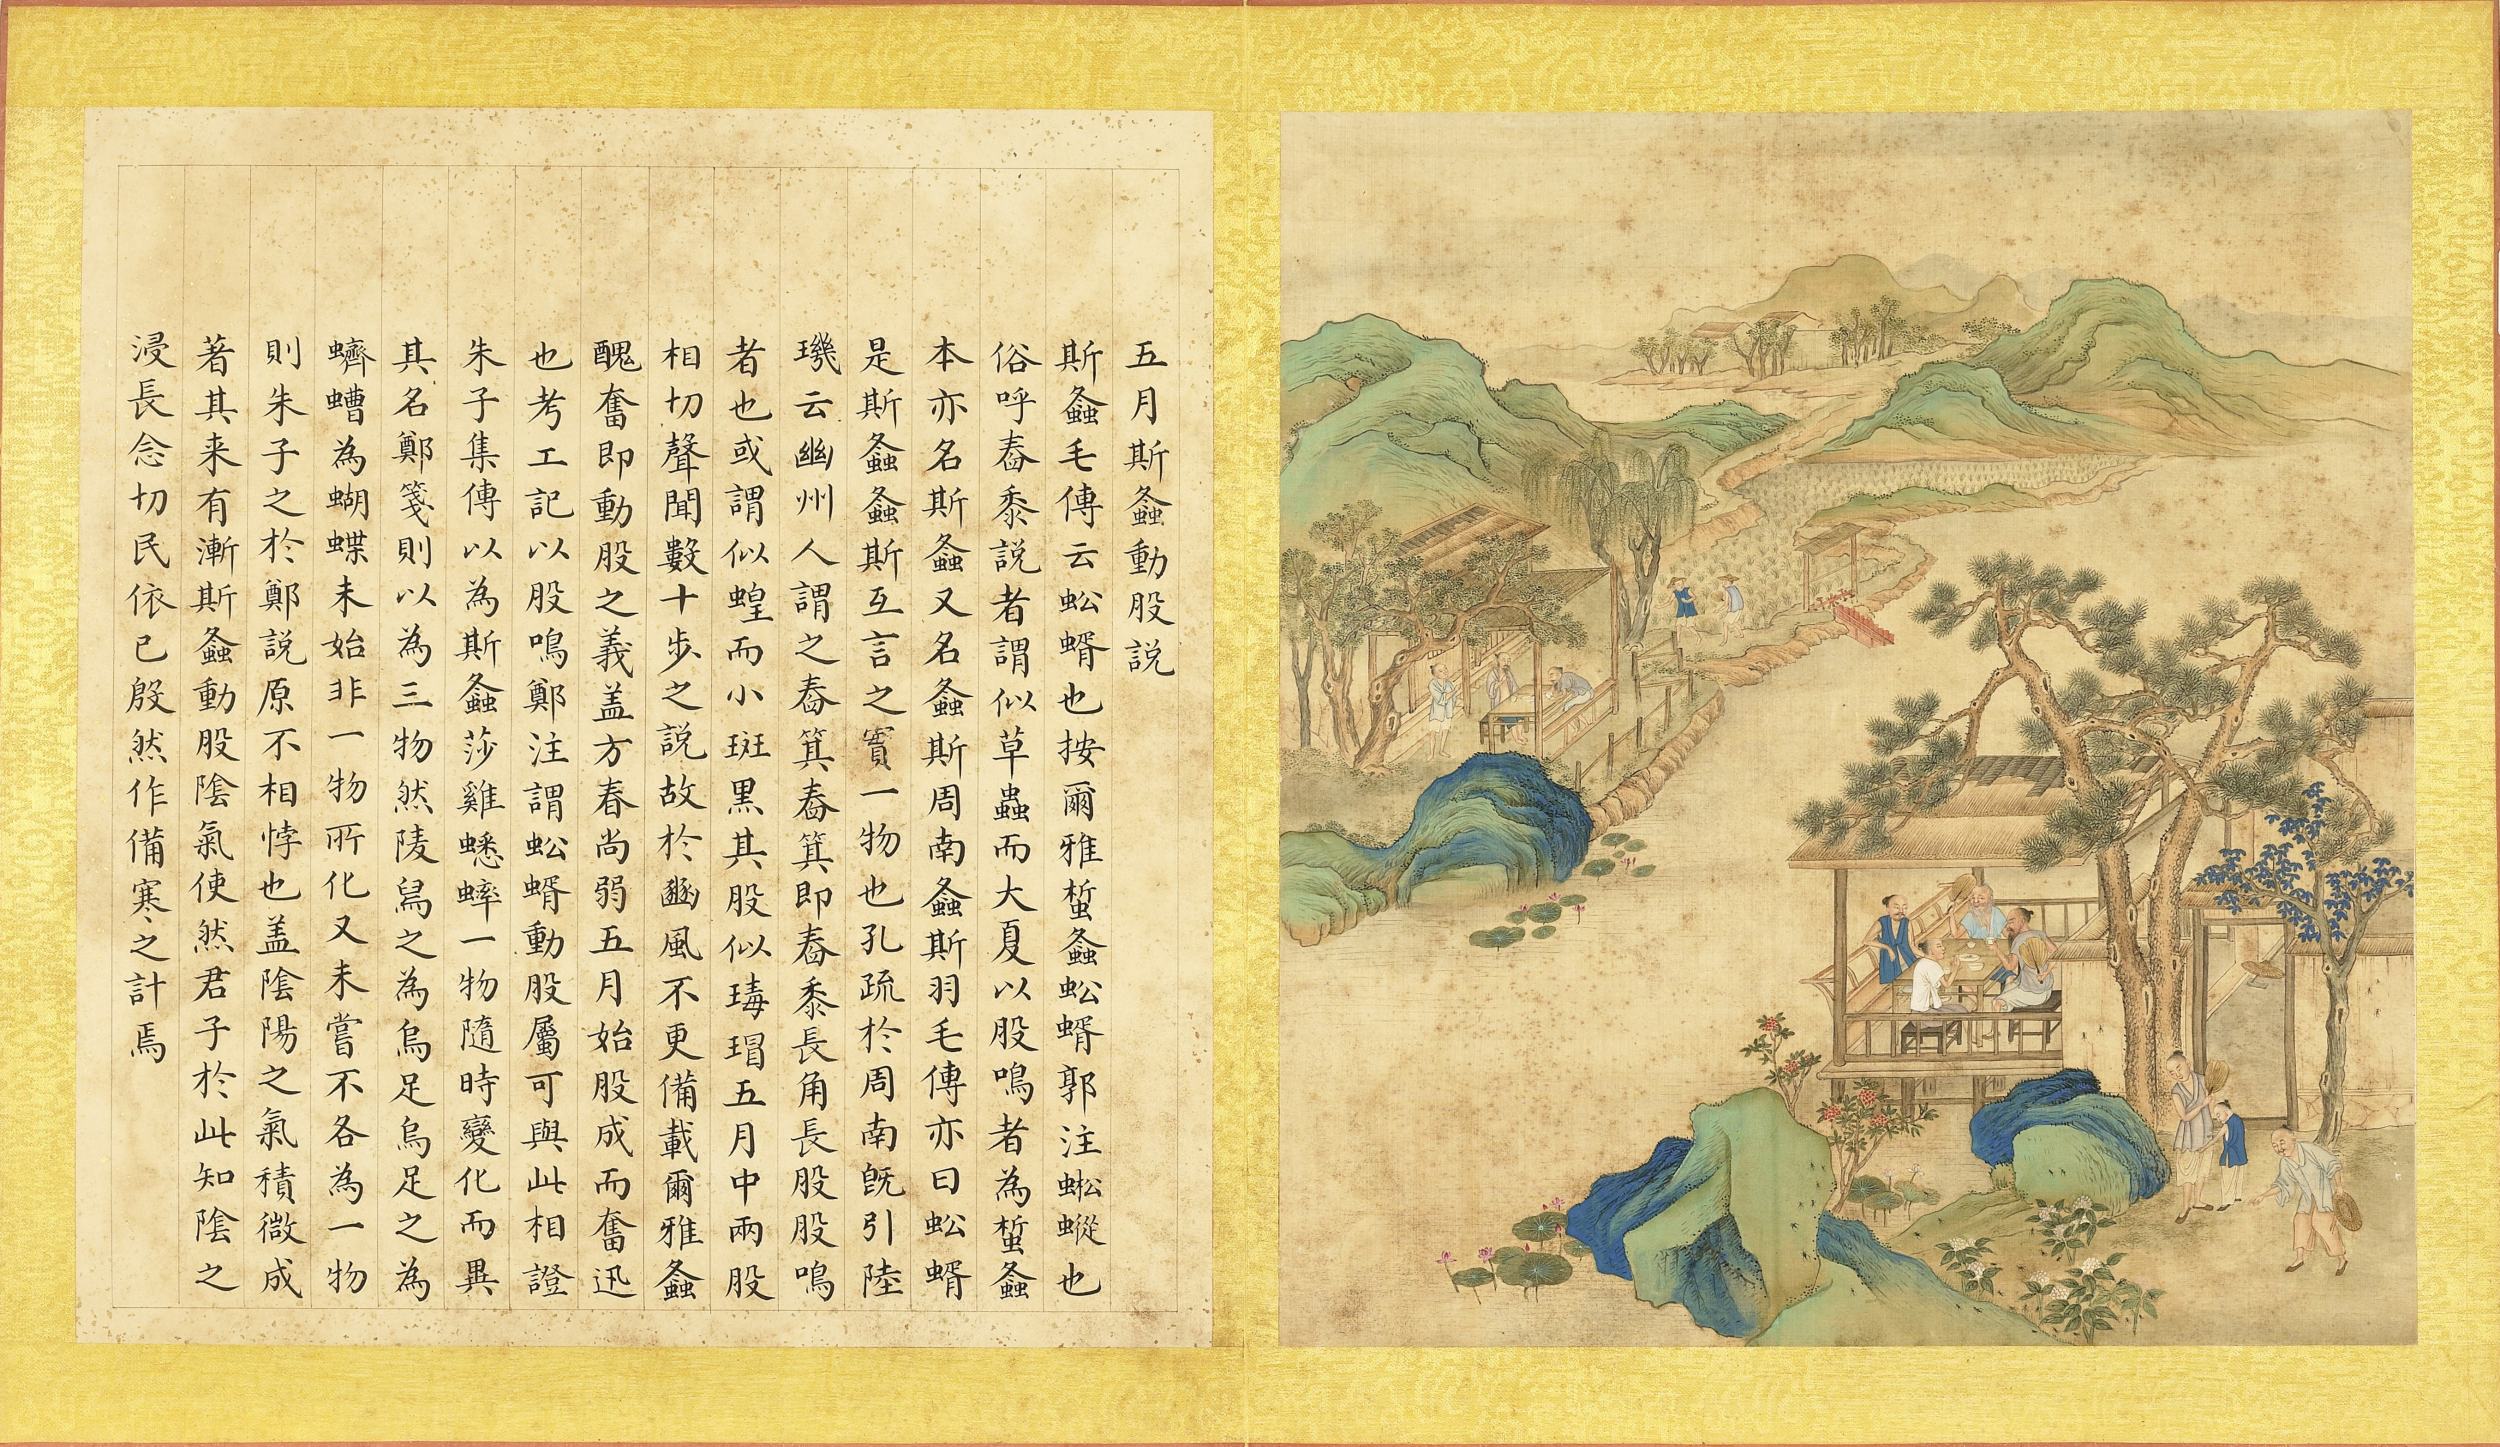 五月斯螽動股説
斯螽毛傳云蚣蝑也按爾雅蜤螽蚣蝑郭注蜙蝑也
俗呼舂黍説者謂似草蟲而大夏以股鳴者為蜤螽
本亦名斯螽又名螽斯周南螽斯羽毛傳亦曰蚣蝑
是斯螽螽斯互言之實一物也孔疏於周南旣引陸
璣云幽州人謂之舂箕舂箕即舂黍長角長股股鳴
者也或謂似蝗而小斑黑其股似瑇瑁五月中兩股
相切聲聞數十步之説故於豳風不更備載爾雅螽
醜奮即動股之義盖方春尚弱五月始股成而奮迅
也考工記以股鳴鄭注謂蚣蝑動股屬可與此相證
朱子集傳以為斯螽莎雞蟋蟀一物隨時變化而異
其名鄭箋則以為三物然陵舄之為烏足烏足之為
蠐螬為蝴蝶未始非一物所化又未嘗不各為一物
則朱子之於鄭説原不相悖也盖陰陽之氣積微成
著其来有漸斯螽動股陰氣使然君子於此知陰之
浸長念切民依已殷然作備寒之計焉